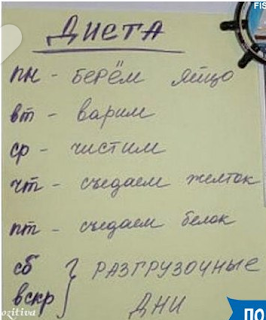 FIS
ДИЕТА
пн - берём яйцо
вт - варим
ср - чистим
чт - съедаем желток
пт - съедаем белок
сб } РАЗГРУЗОЧНЫЕ
вскр } ДНИ
pozitiva
ПО